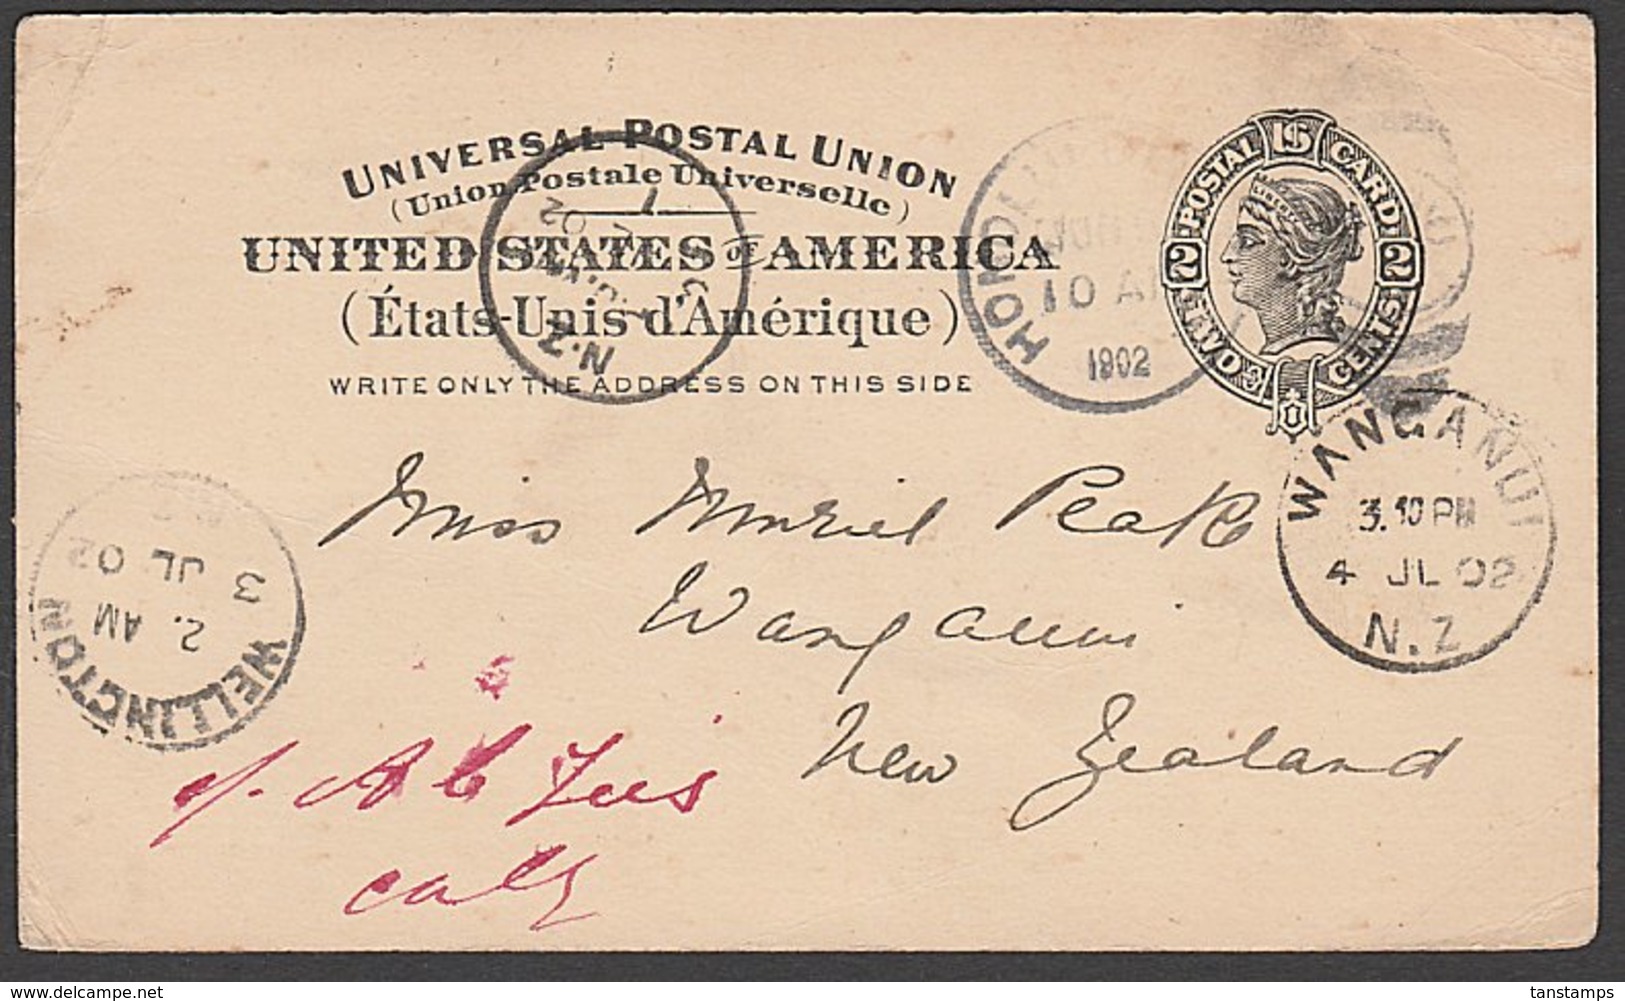 UNIVERSAL POSTAL UNION
(Union Postale Universelle)
UNITED STATES OF AMERICA
(États-Unis d'Amérique)
WRITE ONLY THE ADDRESS ON THIS SIDE
POSTAL CARD
2 2
HONOLULU
10 AM
1902
N.Z.
02
WANGANUI
3.10 PM
4 JL 02
N.Z
WELLINGTON
2. AM
3 JL 02
Miss Muriel Peak
Wanganui
New Zealand
www.delcampe.net
tanstamps